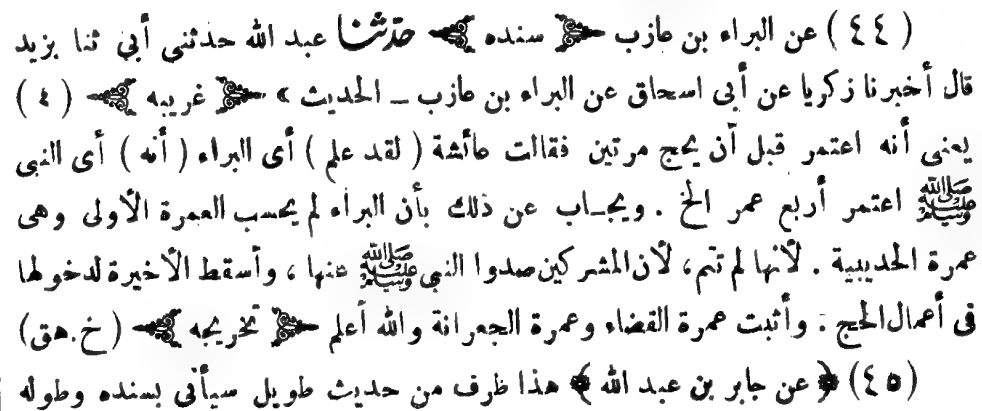 (٤٤) عن البراء بن عازب ﴿ سنده ﴾ حدّثنا عبد الله حدثنى أبى ثنا يزيد
قال أخبرنا زكريا عن أبى اسحاق عن البراء بن عازب ــ الحديث » ﴿ غريبه ﴾ (٤)
يعنى أنه اعتمر قبل أن يحج مرتين فقالت عائشة ( لقد علم ) أى البراء ( أنه ) أى النبى
ﷺ اعتمر أربع عمر الخ . ويجـاب عن ذلك بأن البراء لم يحسب العمرة الأولى وهى
عمرة الحديبية . لأنها لم تتم، لأن المشركين صدوا النبى ﷺ عنها ، وأسقط الأخيرة لدخولها
فى أعمال الحج : وأثبت عمرة القضاء وعمرة الجعرانة والله أعلم ﴿ تخريجه ﴾ (خ.هق)
(٤٥) ﴿ عن جابر بن عبد الله ﴾ هذا طرف من حديث طويل سيأتى بسنده وطوله